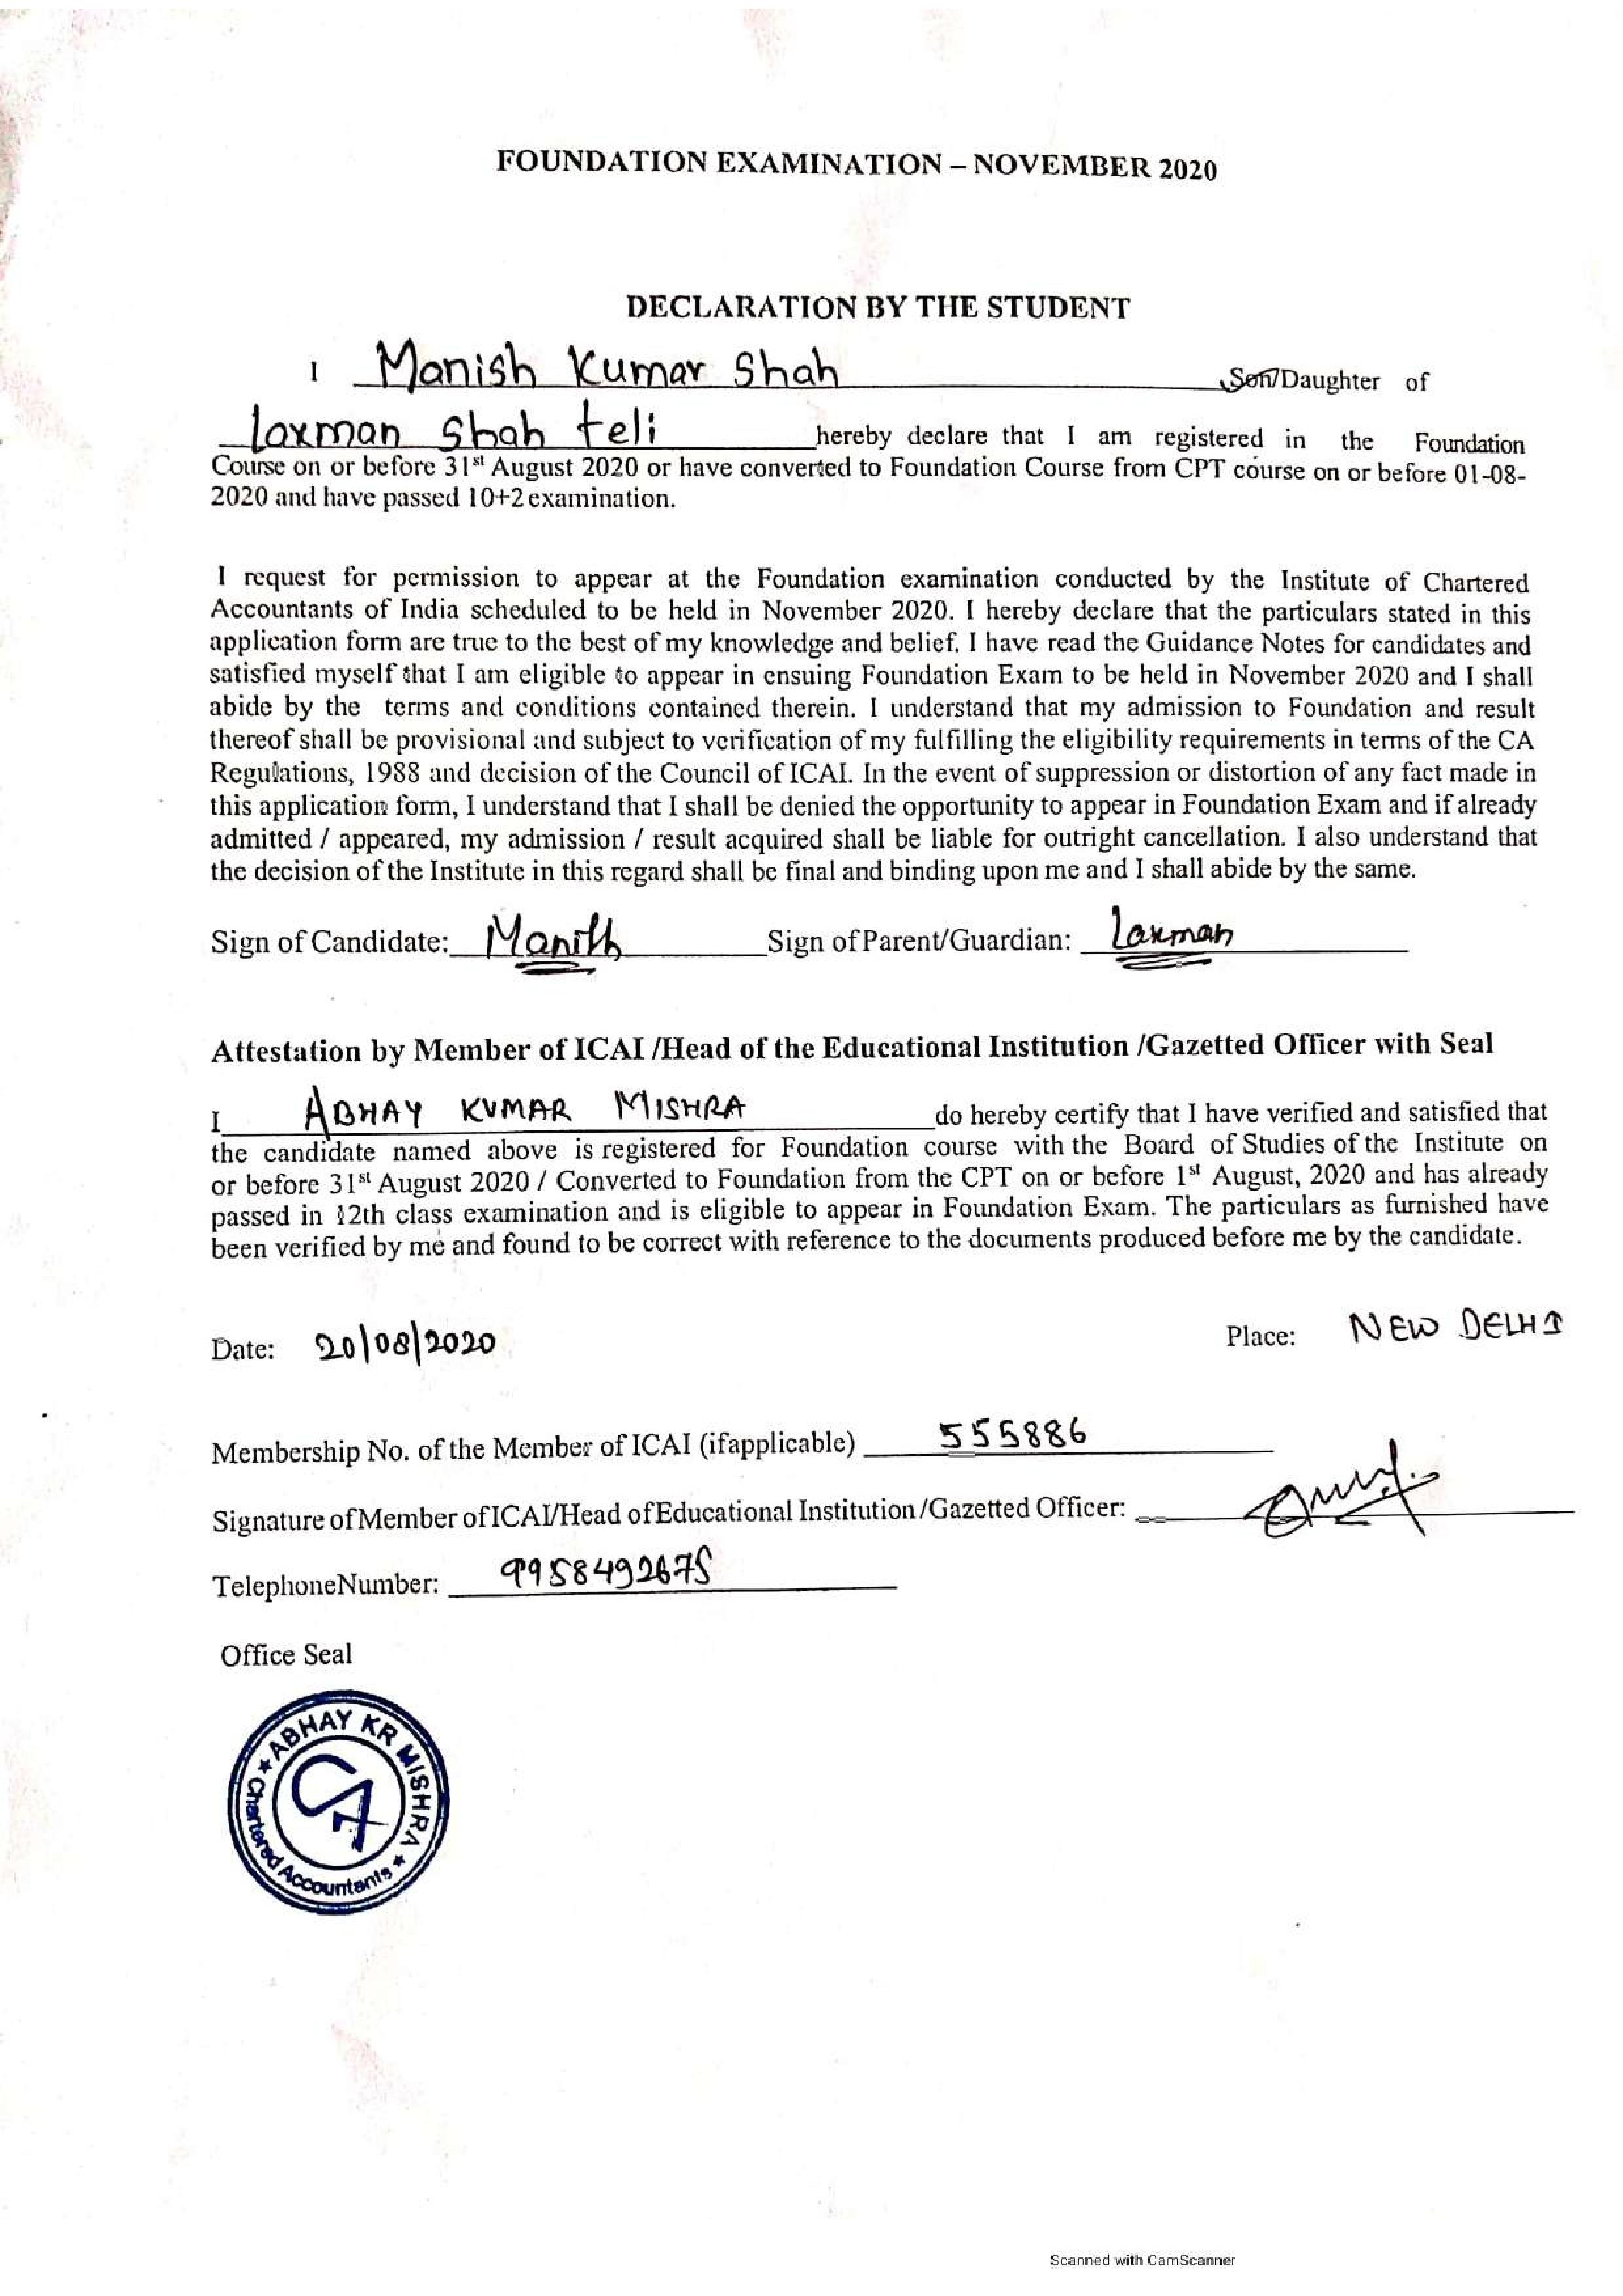 FOUNDATION EXAMINATION – NOVEMBER 2020
DECLARATION BY THE STUDENT
I Manish Kumar Shah Son/Daughter of
Laxman Shah teli hereby declare that I am registered in the Foundation
Course on or before 31st August 2020 or have converted to Foundation Course from CPT course on or before 01-08-
2020 and have passed 10+2 examination.
I request for permission to appear at the Foundation examination conducted by the Institute of Chartered
Accountants of India scheduled to be held in November 2020. I hereby declare that the particulars stated in this
application form are true to the best of my knowledge and belief. I have read the Guidance Notes for candidates and
satisfied myself that I am eligible to appear in ensuing Foundation Exam to be held in November 2020 and I shall
abide by the terms and conditions contained therein. I understand that my admission to Foundation and result
thereof shall be provisional and subject to verification of my fulfilling the eligibility requirements in terms of the CA
Regulations, 1988 and decision of the Council of ICAI. In the event of suppression or distortion of any fact made in
this application form, I understand that I shall be denied the opportunity to appear in Foundation Exam and if already
admitted / appeared, my admission / result acquired shall be liable for outright cancellation. I also understand that
the decision of the Institute in this regard shall be final and binding upon me and I shall abide by the same.
Sign of Candidate: Manish Sign of Parent/Guardian: Laxman
Attestation by Member of ICAI /Head of the Educational Institution /Gazetted Officer with Seal
I ABHAY KUMAR MISHRA do hereby certify that I have verified and satisfied that
the candidate named above is registered for Foundation course with the Board of Studies of the Institute on
or before 31st August 2020 / Converted to Foundation from the CPT on or before 1st August, 2020 and has already
passed in 12th class examination and is eligible to appear in Foundation Exam. The particulars as furnished have
been verified by me and found to be correct with reference to the documents produced before me by the candidate.
Date: 20/08/2020 Place: NEW DELHI
Membership No. of the Member of ICAI (ifapplicable) 555886
Signature of Member of ICAI/Head of Educational Institution /Gazetted Officer:
TelephoneNumber: 9958492675
Office Seal
★ ABHAY KR MISHRA ★
CA
Chartered Accountants
Scanned with CamScanner